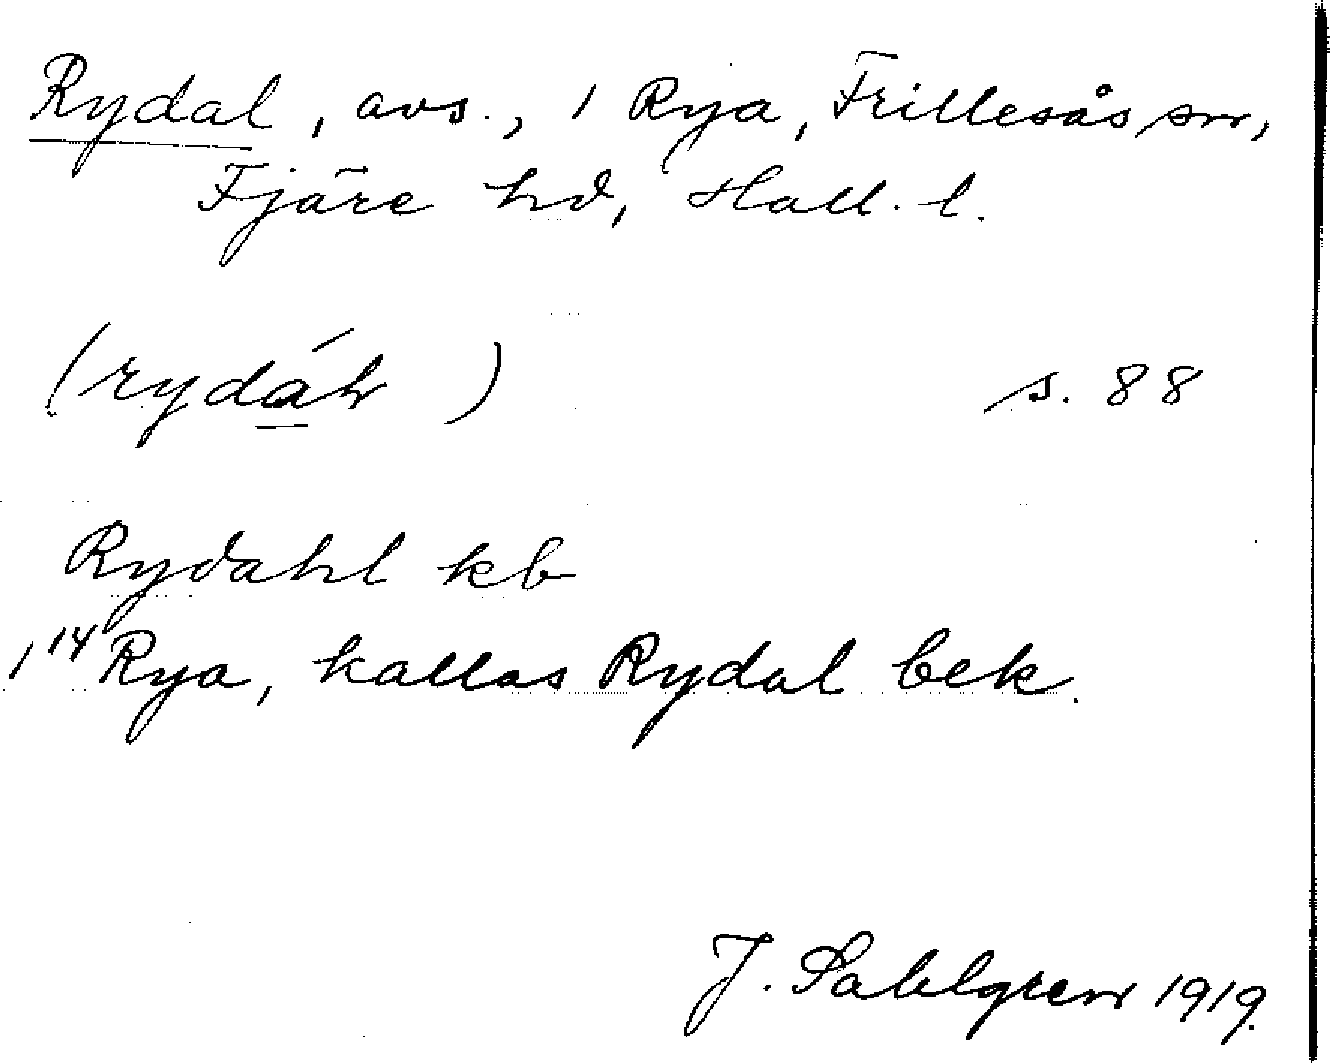 Rydal, avs., 1 Rya, Frillesås sn,
Fjäre hd, Hall. l.
(rydáh) s. 88
Rydahl kb
1¹⁴ Rya, kallas Rydal bek.
J. Sahlgren 1919.